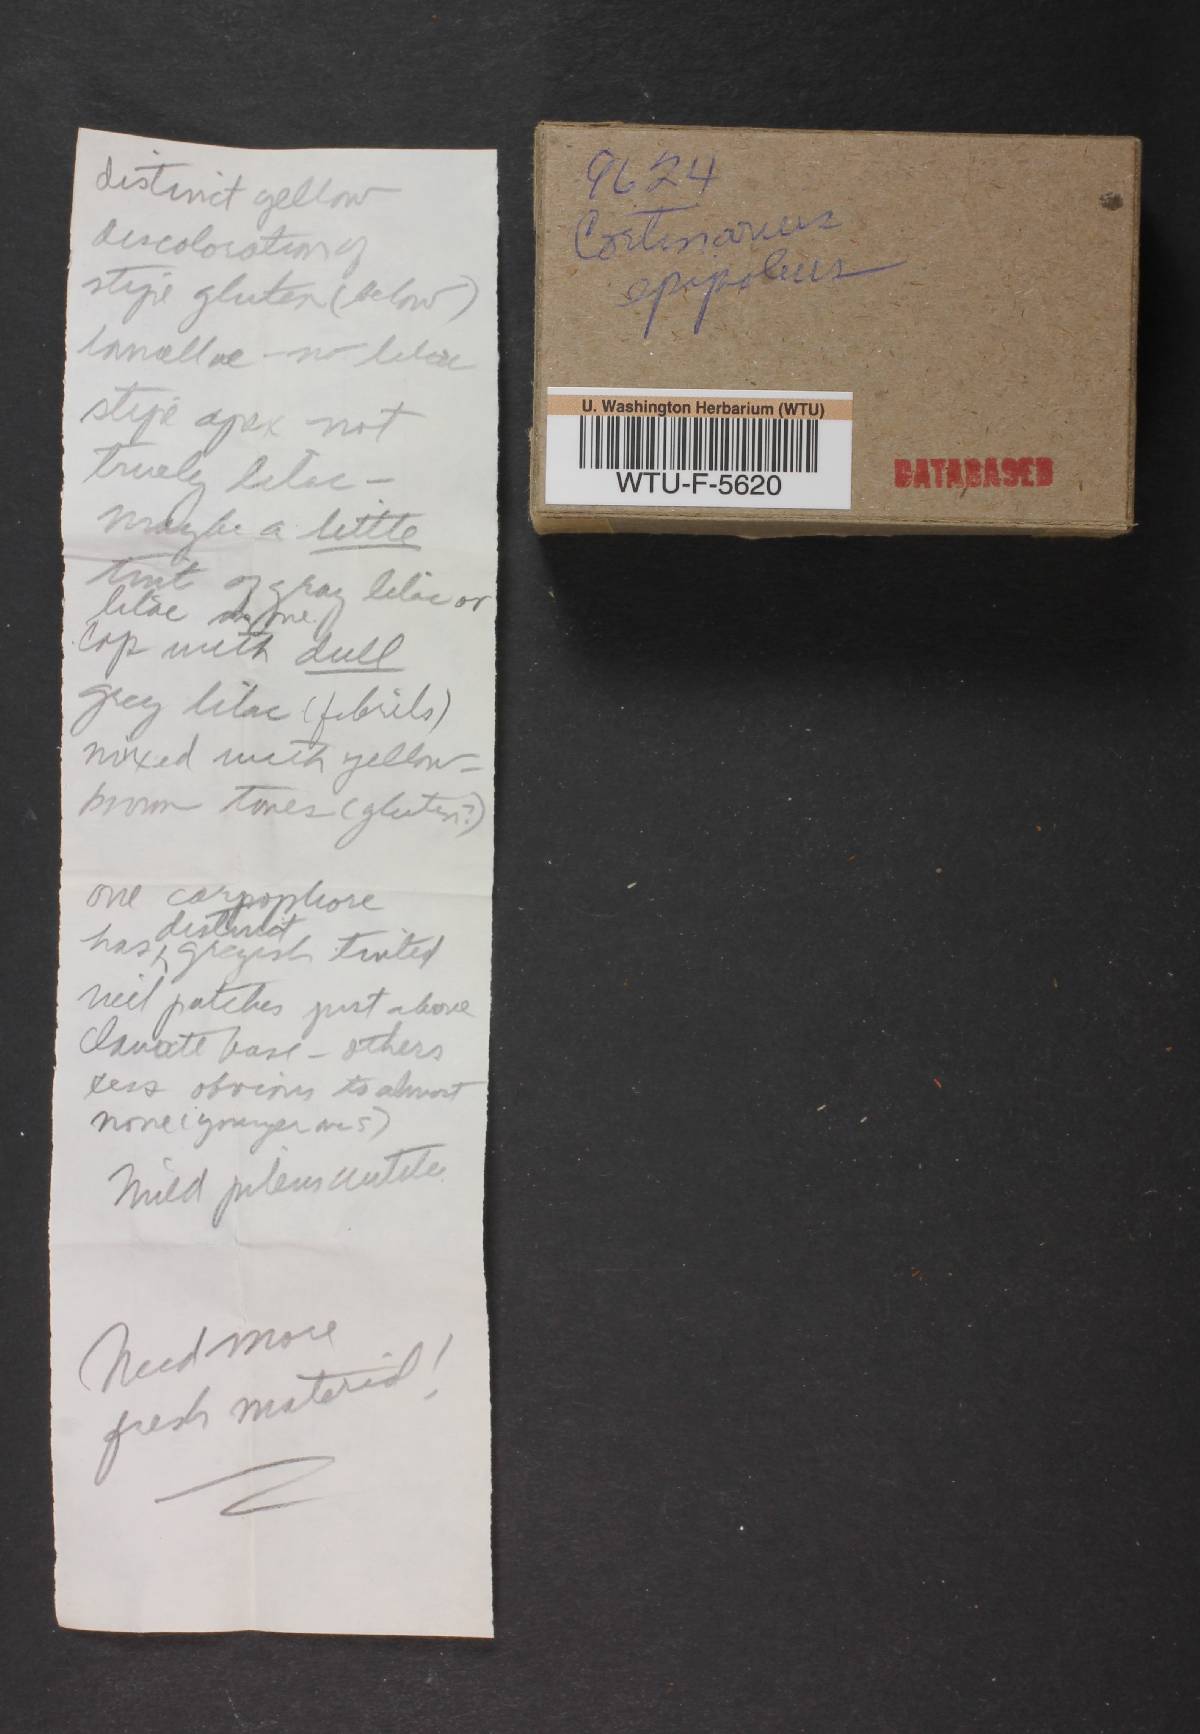 distinct yellow
discoloration of
stipe gluten (below)
lamellae - no lilac
stipe apex not
truely lilac -
maybe a little
tint of gray lilac or
lilac
cap with dull
grey lilac (fibrils)
mixed with yellow-
brown tones (gluten?)
one carpophore
distinct
has greyish tinted
veil patches just above
clavate base - others
less obvious to almost
none (younger ones)
Mild pileus cuticle
Need more
fresh material!
9624
Cortinarius
epipoleus
U. Washington Herbarium (WTU)
WTU-F-5620
DATABASED